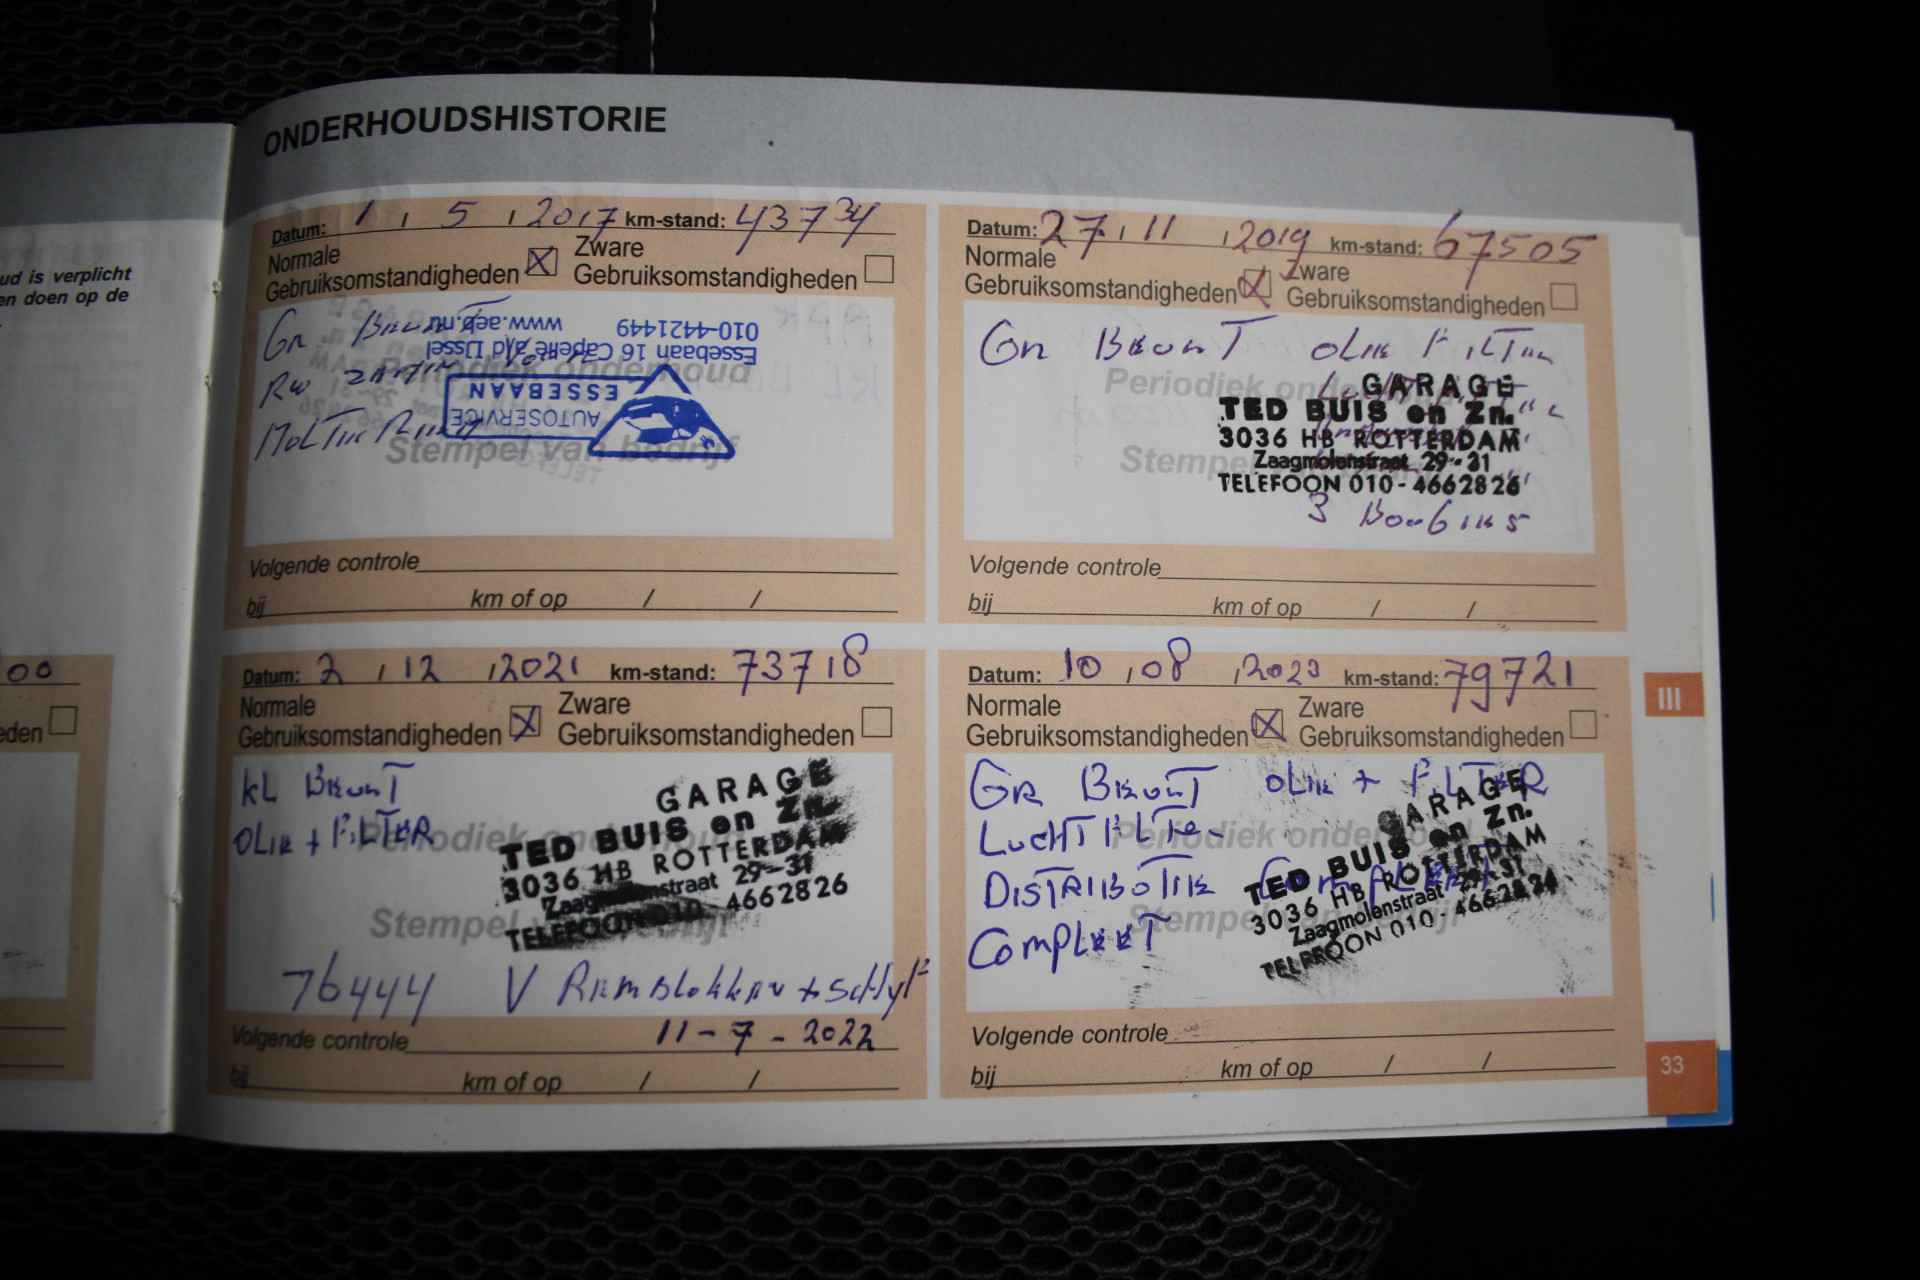 ONDERHOUDSHISTORIE
ud is verplicht
en doen op de
Datum: 1 / 5 / 2017 km-stand: 43734
Normale
Gebruiksomstandigheden
Zware
Gebruiksomstandigheden
Gr Beurt
010-4421449 www.aeb.nu
Essebaan 16 Capelle a/d IJssel
AUTOSERVICE
ESSEBAAN
Periodiek onderhoud
Stempel van bedrijf
Volgende controle
bij km of op / /
Datum: 27 / 11 / 2019 km-stand: 67505
Normale
Gebruiksomstandigheden
Zware
Gebruiksomstandigheden
Gr Beurt olie Filter
Periodiek
GARAGE
TED BUIS en Zn.
3036 HB ROTTERDAM
Zaagmolenstraat 29-31
TELEFOON 010-4662826
Stempel
3 Bougies
Volgende controle
bij km of op / /
00
eden
Datum: 2 / 12 / 2021 km-stand: 73718
Normale
Gebruiksomstandigheden
Zware
Gebruiksomstandigheden
KL Beurt
OLIE + FILTER
Periodiek
GARAGE
TED BUIS en Zn.
3036 HB ROTTERDAM
Zaagmolenstraat 29-31
TELEFOON 010-4662826
Stempel
76444 V Remblokken + schyf
Volgende controle 11-7-2022
bij km of op / /
Datum: 10 / 08 / 2023 km-stand: 79721
Normale
Gebruiksomstandigheden
Zware
Gebruiksomstandigheden
GR BEURT OLIE + FILTER
LUCHTFILTER
DISTRIBUTIE
COMPLEET
Periodiek onderhoud
GARAGE
TED BUIS en Zn.
3036 HB ROTTERDAM
Zaagmolenstraat 29-31
TELEFOON 010-4662826
Stempel van bedrijf
Volgende controle
bij km of op / /
III
33